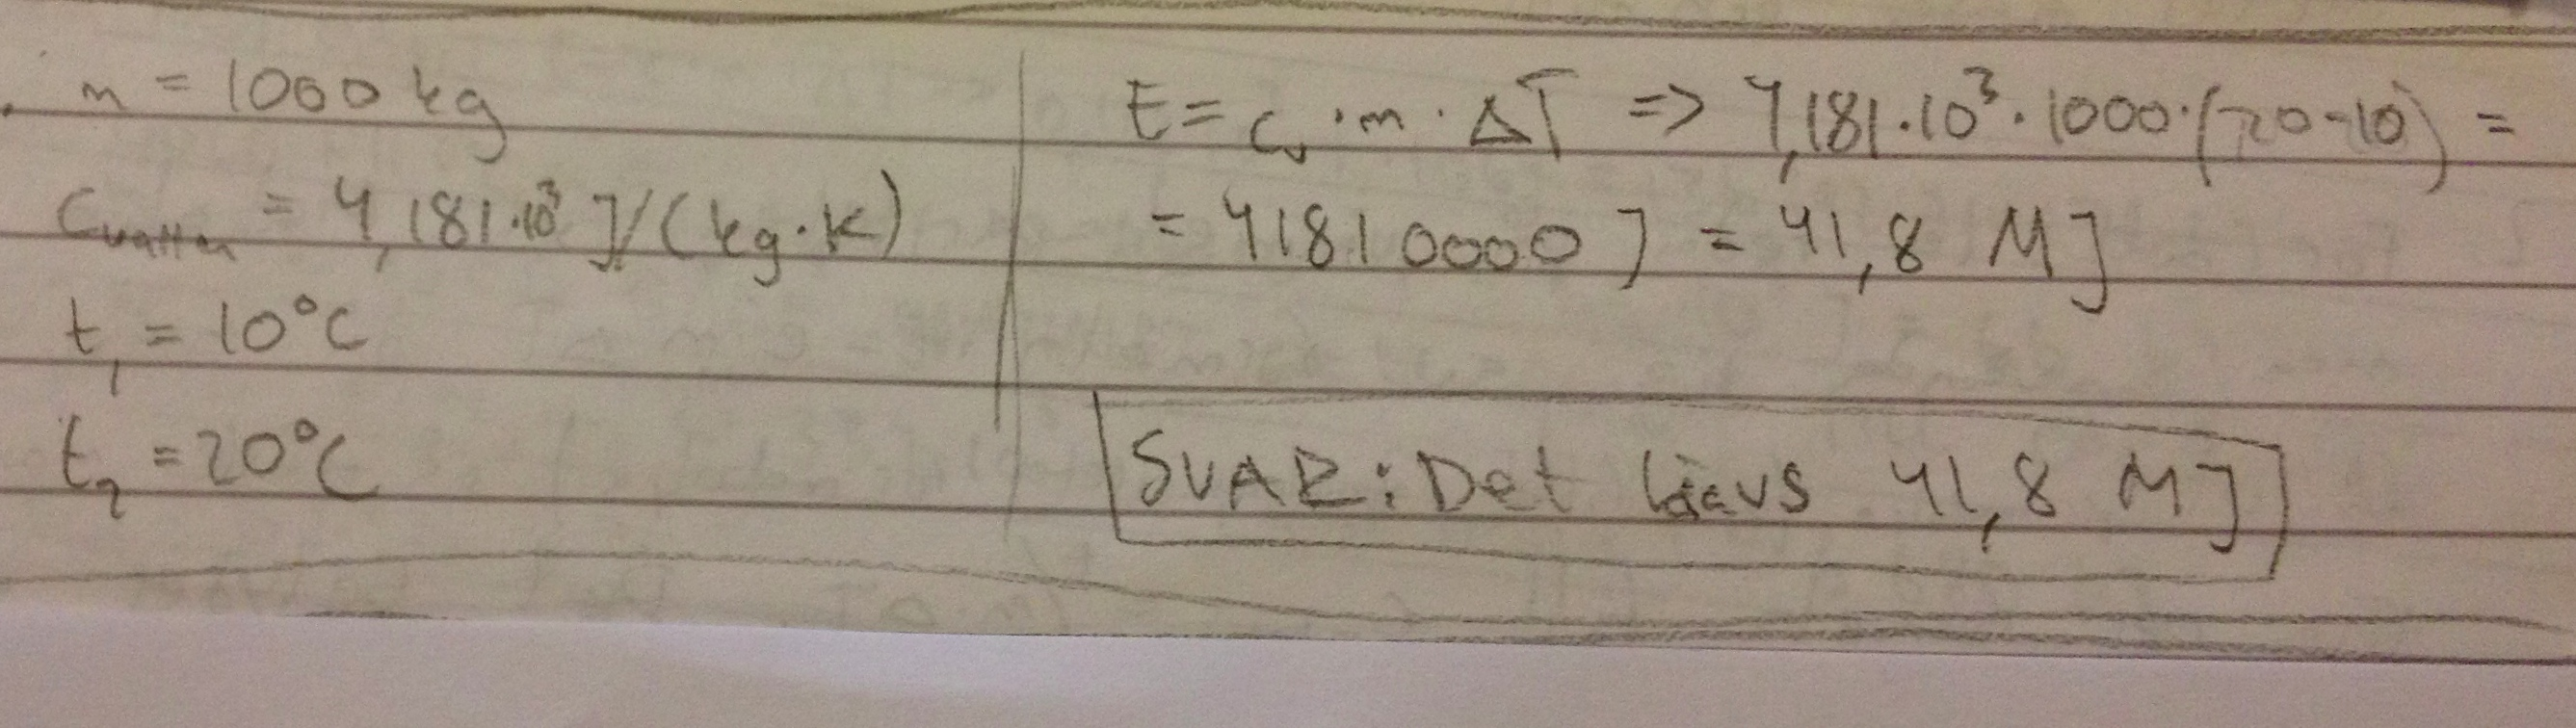 m = 1000 kg
Cvatten = 4,181·10³ J/(kg·K)
t₁ = 10°C
t₂ = 20°C
E = cᵥ · m · ΔT => 4,181·10³·1000·(20-10) =
= 41810000 J = 41,8 MJ
SVAR: Det krävs 41,8 MJ